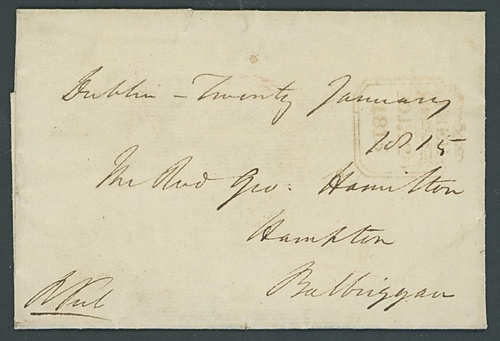 Dublin - Twenty January
1815
The Revd Geo. Hamilton
Hampton
Balbriggan
R Peel